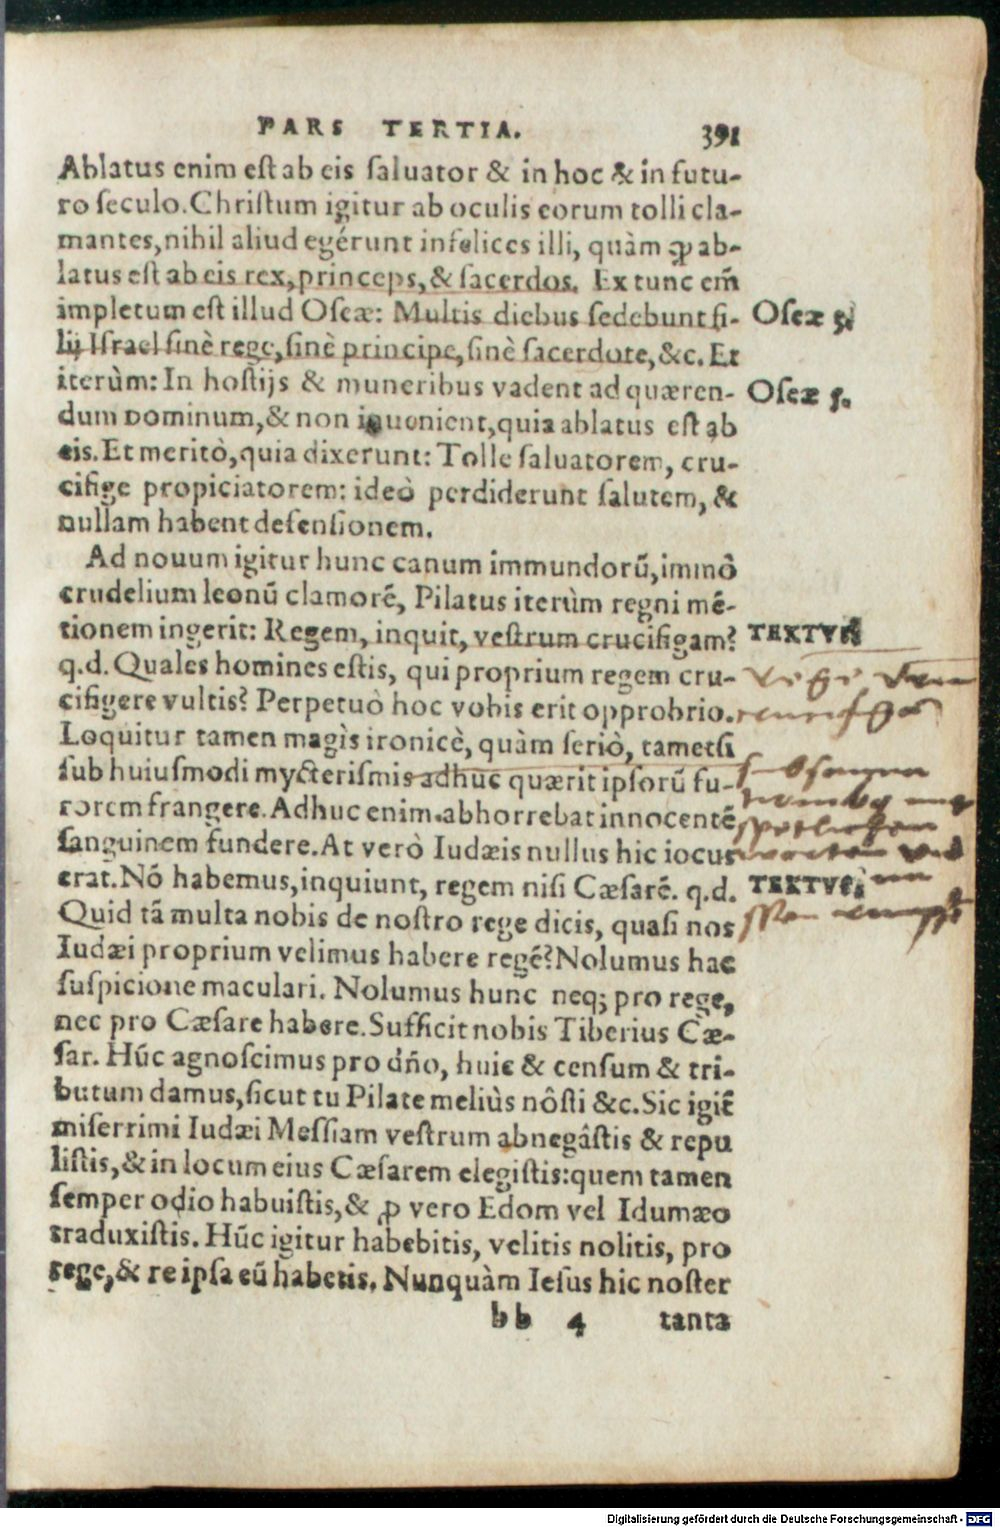 PARS TERTIA. 391
Ablatus enim est ab eis ſaluator & in hoc & in futu-
ro ſeculo. Chriſtum igitur ab oculis eorum tolli cla-
mantes, nihil aliud egérunt infelices illi, quàm ꝙ ab-
latus eſt ab eis rex, princeps, & ſacerdos. Ex tunc em̃
impletum eſt illud Oſeæ: Multis diebus ſedebunt fi-
Oſeæ 3.
lij Iſrael ſinè rege, ſinè principe, ſinè ſacerdote, &c. Et
iterùm: In hoſtijs & muneribus vadent ad quæren-
Oſeæ 5.
dum Dominum, & non inuenient, quia ablatus eſt ab
eis. Et meritò, quia dixerunt: Tolle ſaluatorem, cru-
cifige propiciatorem: ideò perdiderunt ſalutem, &
nullam habent defenſionem.
Ad nouum igitur hunc canum immundorũ, immò
crudelium leonũ clamorẽ, Pilatus iterùm regni mẽ-
tionem ingerit: Regem, inquit, veſtrum crucifigam?
TEXTVS
q.d. Quales homines eſtis, qui proprium regem cru-
cifigere vultis? Perpetuò hoc vobis erit opprobrio.
Loquitur tamen magìs ironicè, quàm ſeriò, tametſi
ſub huiuſmodi mycteriſmis adhuc quærit ipſorũ fu-
rorem frangere. Adhuc enim abhorrebat innocentẽ
ſanguinem fundere. At verò Iudæis nullus hic iocus
erat. Nõ habemus, inquiunt, regem niſi Cæſarẽ. q.d.
TEXTVS
Quid tã multa nobis de noſtro rege dicis, quaſi nos
Iudæi proprium velimus habere regẽ? Nolumus hac
ſuſpicione maculari. Nolumus hunc neq; pro rege,
nec pro Cæſare habere. Sufficit nobis Tiberius Cæ-
ſar. Hũc agnoſcimus pro dño, huic & cenſum & tri-
butum damus, ſicut tu Pilate meliùs nôſti &c. Sic igit̃
miſerrimi Iudæi Meſſiam veſtrum abnegâſtis & repu
liſtis, & in locum eius Cæſarem elegiſtis: quem tamen
ſemper odio habuiſtis, & ꝓ vero Edom vel Idumæo
traduxiſtis. Hũc igitur habebitis, velitis nolitis, pro
rege, & re ipſa eũ habetis. Nunquàm Ieſus hic noſter
bb 4 tanta
Digitalisierung gefördert durch die Deutsche Forschungsgemeinschaft - DFG